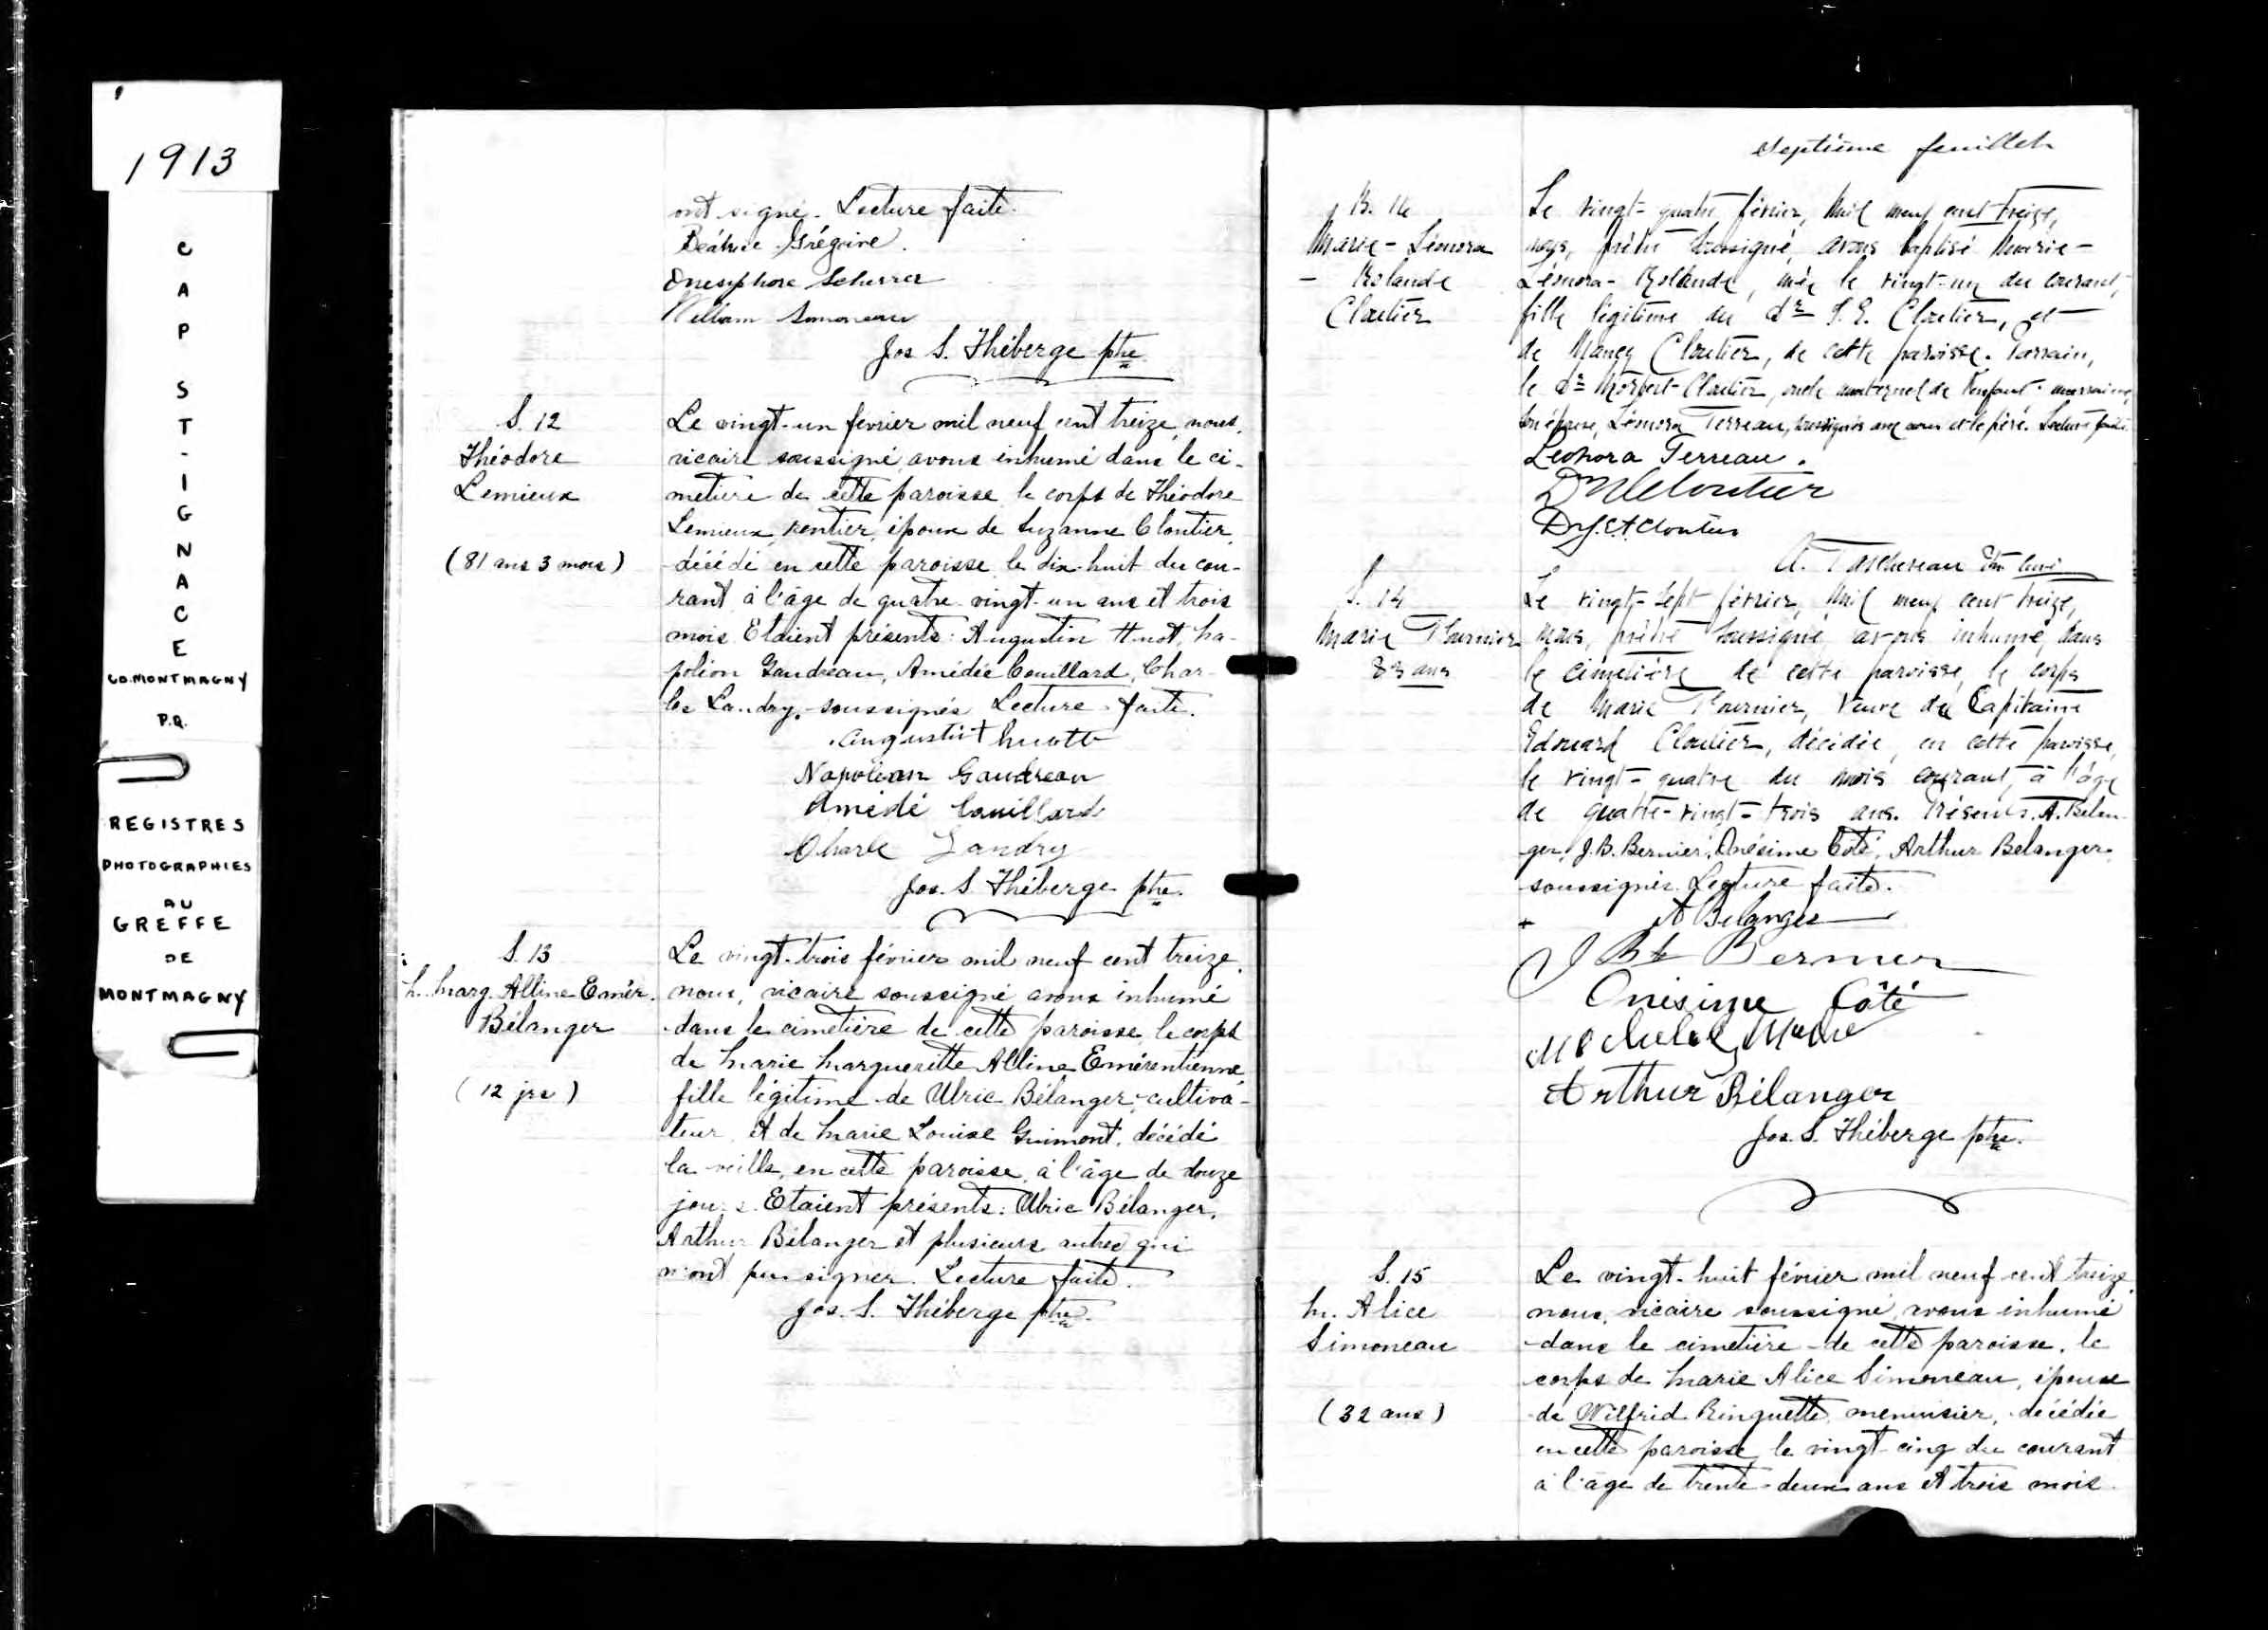 1913
CAP ST-IGNACE
CO. MONTMAGNY
P.Q.
REGISTRES
PHOTOGRAPHIES
AU
GREFFE
DE
MONTMAGNY
ont signé. Lecture faite.
Béatrice Grégoire.
Onesyphore Scherrer
William Simoneau
Jos S. Théberge ptre
S. 12
Théodore
Lemieux
(81 ans 3 mois)
Le vingt-un février mil neuf cent treize, nous,
vicaire soussigné avons inhumé dans le ci-
metière de cette paroisse le corps de Théodore
Lemieux, rentier, époux de Suzanne Cloutier,
décédé en cette paroisse le dix-huit du cou-
rant à l'âge de quatre-vingt-un ans et trois
mois. Etaient présents: Augustin Huot, Na-
poléon Gaudreau, Amédée Couillard, Char-
les Landry, soussignés Lecture faite.
Augustin huott
Napoléon Gaudreau
Amédé Couillard
Charle Landry
Jos. S. Théberge ptre.
S. 13
M. Marg. Alline Emér.
Bélanger
(12 jrs)
Le vingt-trois février mil neuf cent treize,
nous, vicaire soussigné avons inhumé
dans le cimetière de cette paroisse le corps
de Marie Margueritte Alline Emérentienne,
fille légitime de Ulric Bélanger, cultiva-
teur, et de Marie Louise Guimont, décédé
la veille, en cette paroisse, à l'âge de douze
jours. Etaient présents: Ulric Bélanger,
Arthur Bélanger et plusieurs autres qui
n'ont pu signer. Lecture faite.
Jos. S. Théberge ptre.
septième feuillet
B. 14
Marie-Léonora
-Rolande
Cloutier
Le vingt-quatre février, mil neuf cent treize,
nous, prêtre soussigné, avons baptisé Marie-
Léonora-Rolande, née le vingt-un du courant,
fille légitime du Dr J. E. Cloutier, et
de Nancy Cloutier, de cette paroisse. Parrain,
le Dr Norbert Cloutier, oncle maternel de l'enfant. marraine,
son épouse, Léonora Terreau, soussignés avec nous et le père. Lecture faite
Leonora Terreau.
Dr N Cloutier
A. Taschereau Ptr Curé
S. 14
Marie Fournier
83 ans
Le vingt-sept février, mil neuf cent treize,
nous, prêtre soussigné, avons inhumé, dans
le cimetière de cette paroisse, le corps
de Marie Fournier, veuve du Capitaine
Edouard Cloutier, décédée, en cette paroisse,
le vingt-quatre du mois courant, à l'âge
de quatre-vingt-trois ans. Présents. A. Bélan-
ger, J.B. Bernier, Onésime Côté, Arthur Belanger
soussignés. Lecture faite.
A Belanger
J Bte Bernier
Onésime Côté
Arthur Bélanger
Jos. S. Théberge ptre.
S. 15
M. Alice
Simoneau
(32 ans)
Le vingt-huit février mil neuf cent treize,
nous, vicaire soussigné, avons inhumé
dans le cimetière de cette paroisse, le
corps de Marie Alice Simoneau, épouse
de Wilfrid Ringuette, menuisier, décédée
en cette paroisse, le vingt-cinq du courant
à l'âge de trente-deux ans et trois mois.